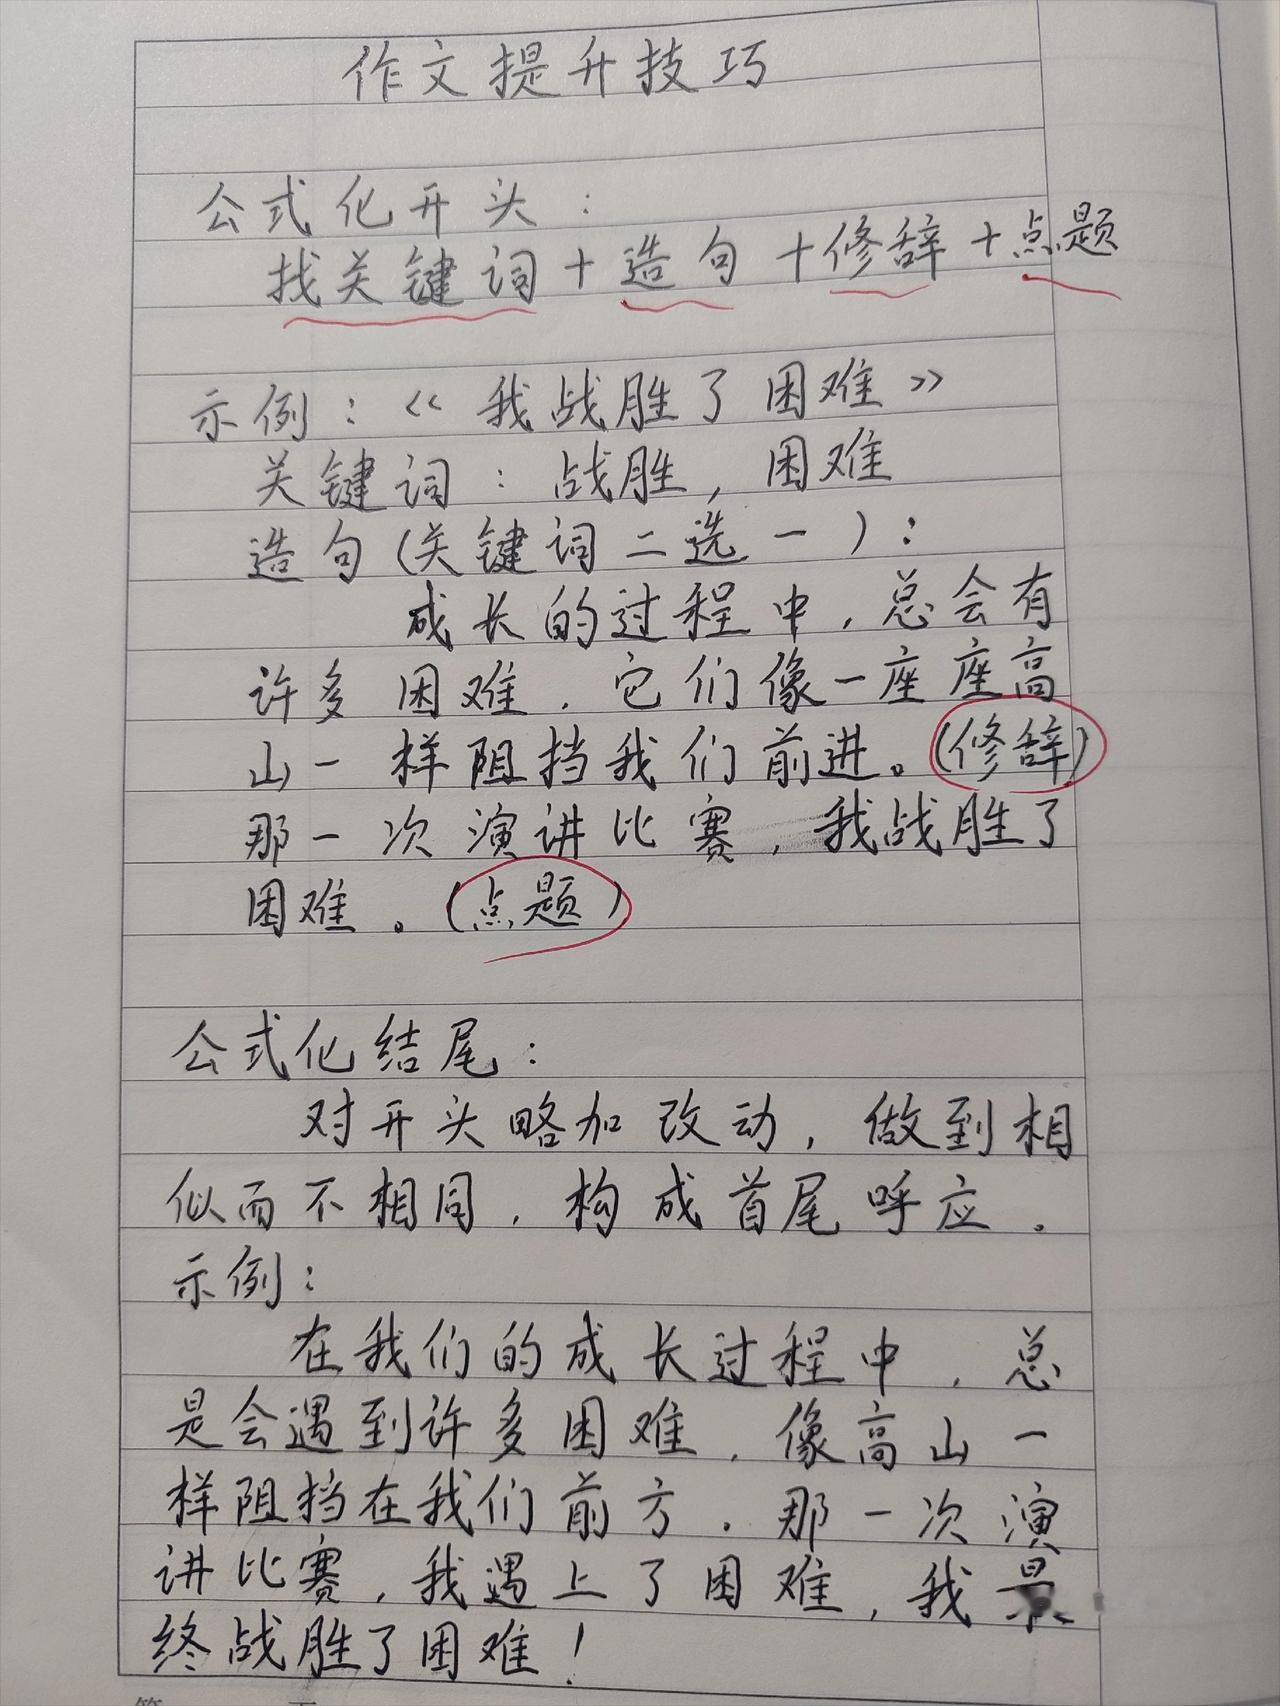 作文提升技巧
公式化开头：
找关键词＋造句＋修辞＋点题
示例：《我战胜了困难》
关键词：战胜，困难
造句（关键词二选一）：
成长的过程中，总会有
许多困难，它们像一座座高
山一样阻挡我们前进。（修辞）
那一次演讲比赛，我战胜了
困难。（点题）
公式化结尾：
对开头略加改动，做到相
似而不相同，构成首尾呼应．
示例：
在我们的成长过程中，总
是会遇到许多困难，像高山一
样阻挡在我们前方．那一次演
讲比赛，我遇上了困难，我最
终战胜了困难！